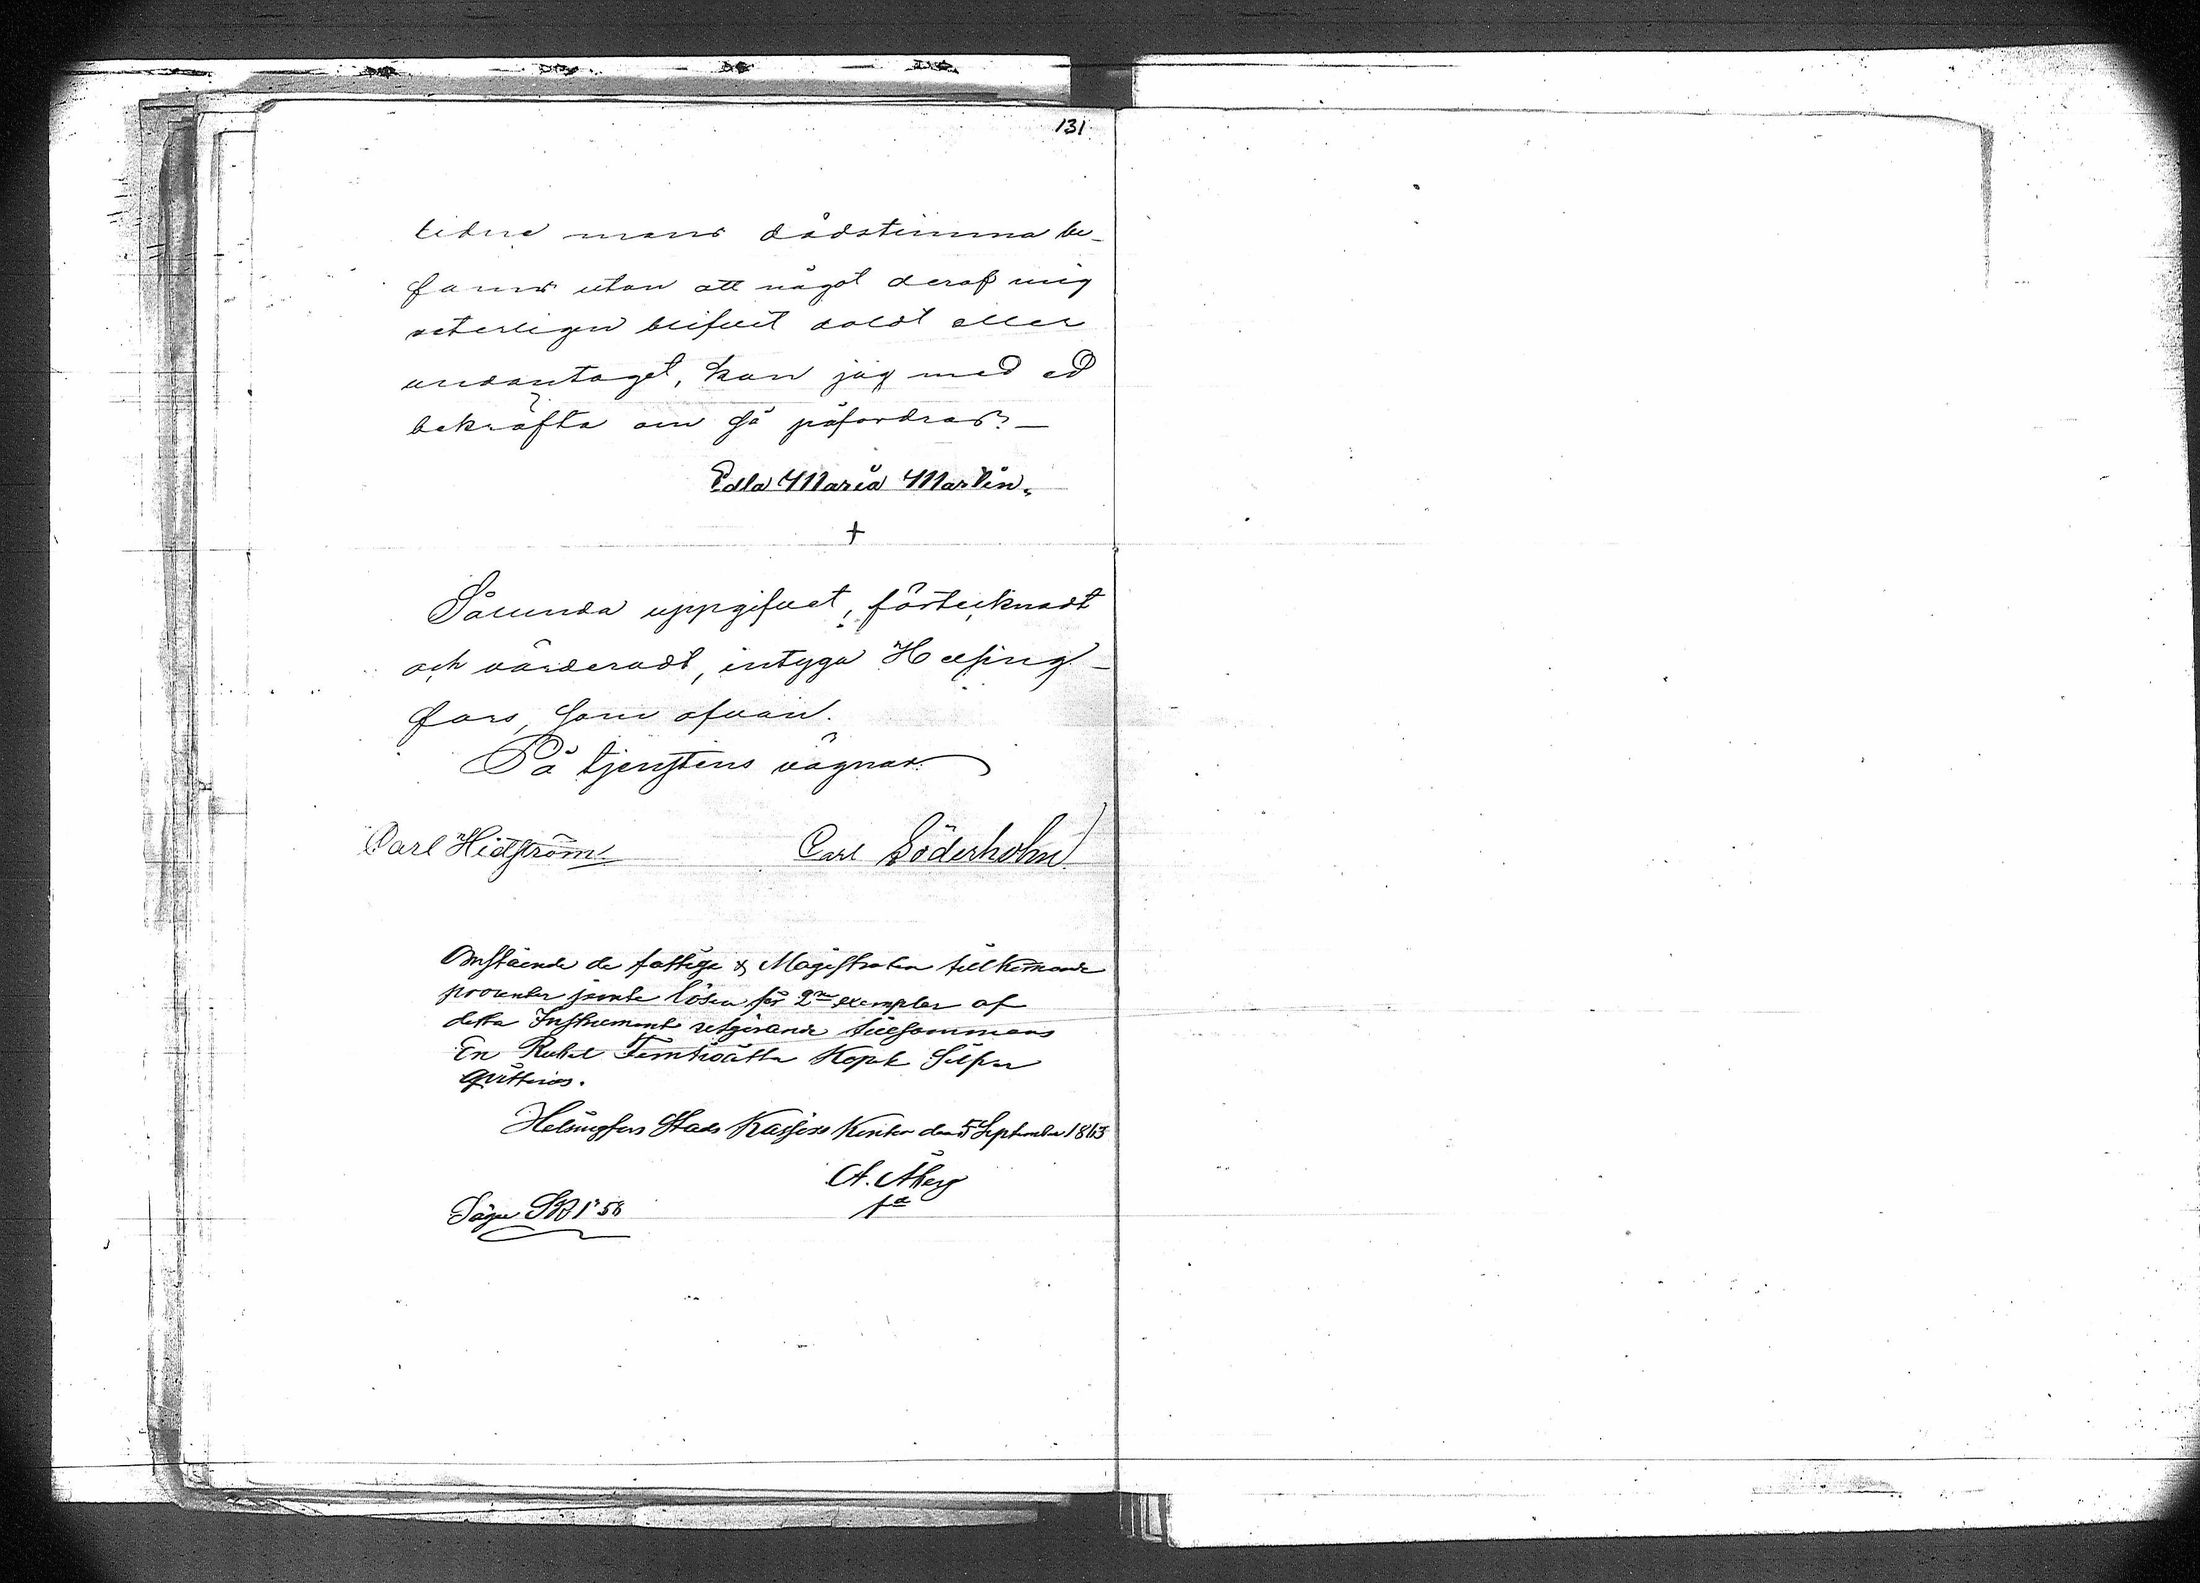 131
lidne mans dödstimma be-
fans utan att något deraf mig
veterligen blifvit doldt eller
undantaget, kan jag med ed
bekräfta om så påfordras. —
Edla Maria Martin.
+
Sålunda uppgifvet, förtecknadt
och värderadt, intyga Helsing-
fors, som ofvan.
På tjenstens vägnar
Carl Hidström. Carl Söderholm
Omstående de fattige & Magistraten tillkommande
procenter jemte lösen för 2ne exemplar af
detta Instrument utgörande tillsammans
En Rubel Femtioåtta Kopek Silfver
qvitteras.
Helsingfors Stads Kassörs Kontor den 5 September 1863
A. Åberg
Säger SR 1" 58